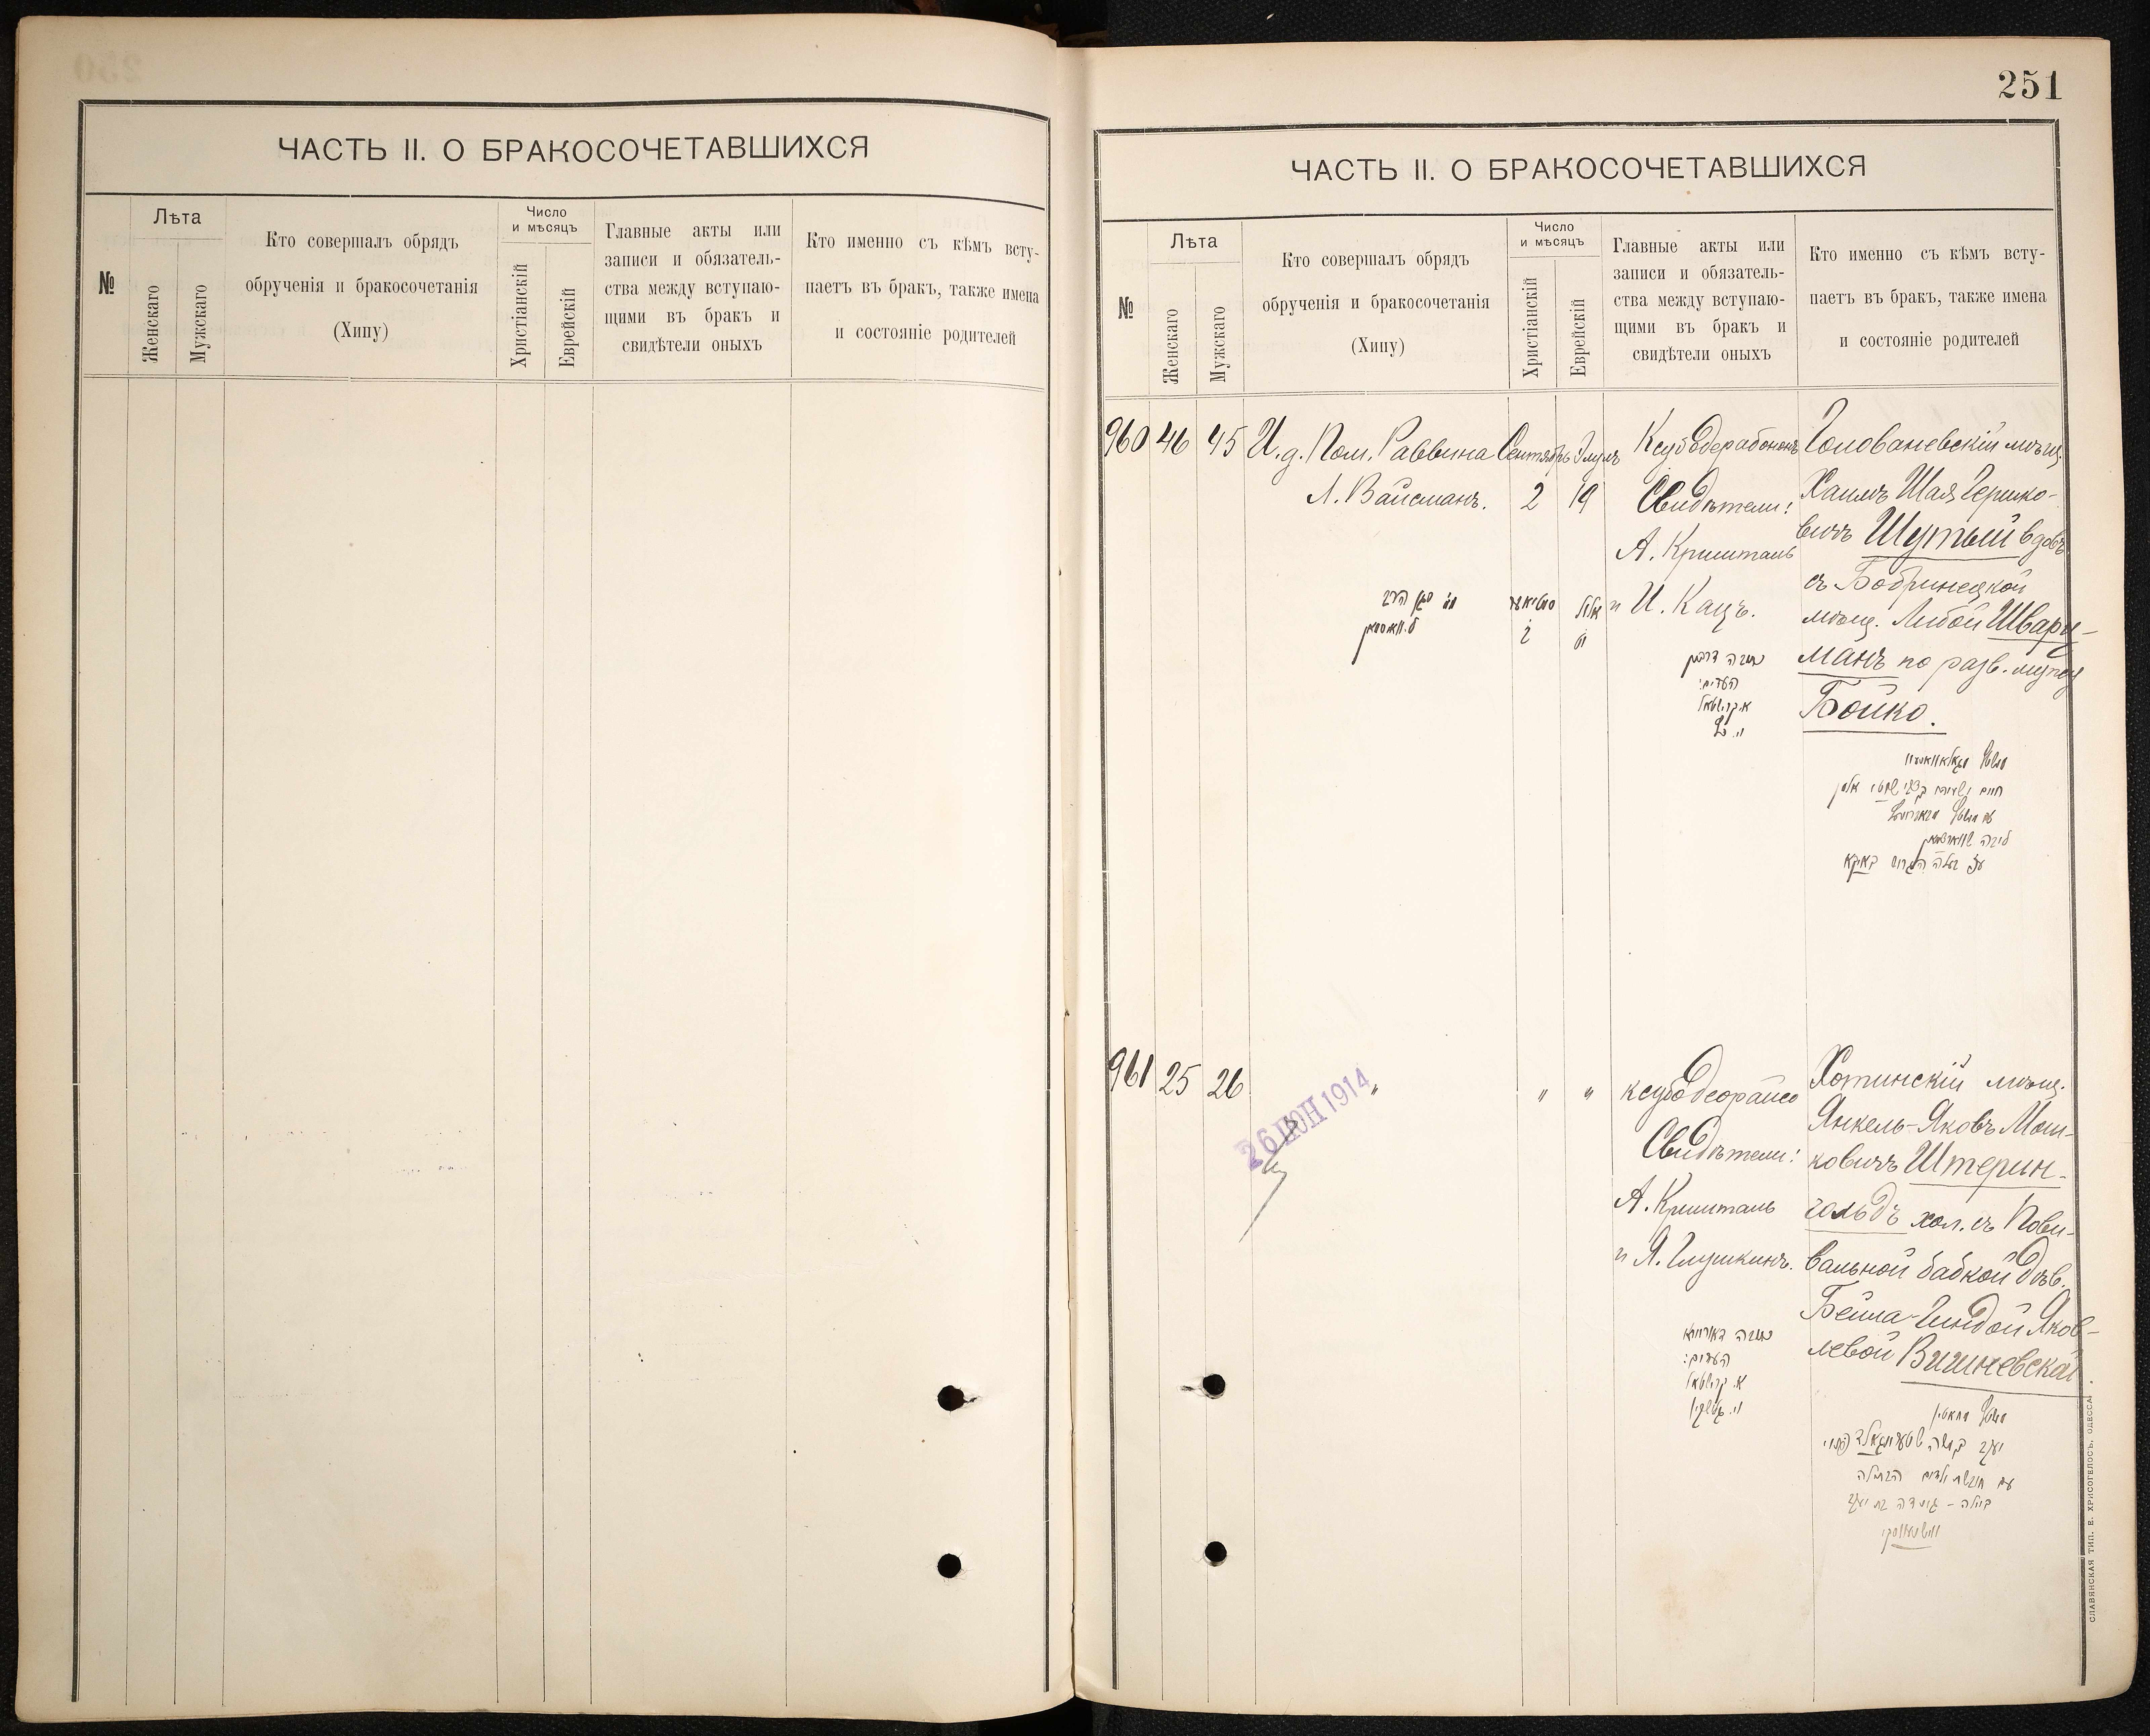 ЧАСТЬ II. О БРАКОСОЧЕТАВШИХСЯ
№
Лѣта
Женскаго
Мужскаго
Кто совершалъ обрядъ
обрученія и бракосочетанія
(Хипу)
Число
и мѣсяцъ
Христіанскій
Еврейскій
Главные акты или
записи и обязатель-
ства между вступаю-
щими въ бракъ и
свидѣтели оныхъ
Кто именно съ кѣмъ всту-
паетъ въ бракъ, также имена
и состояніе родителей
251
ЧАСТЬ II. О БРАКОСОЧЕТАВШИХСЯ
№
Лѣта
Женскаго
Мужскаго
Кто совершалъ обрядъ
обрученія и бракосочетанія
(Хипу)
Число
и мѣсяцъ
Христіанскій
Еврейскій
Главные акты или
записи и обязатель-
ства между вступаю-
щими въ бракъ и
свидѣтели оныхъ
Кто именно съ кѣмъ всту-
паетъ въ бракъ, также имена
и состояніе родителей
960
46
45
И. д. Пом. Раввина
Л. Вайсманъ.
Сентябрь
2
Элулъ
19
Ксубодерабононъ
Свидѣтели:
А. Кришталь
и И. Кацъ.
Голованевскій мѣщ.
Хаимъ Шая Гершко-
вичъ Шутый вдов.
съ Бобринецкой
мѣщ. Либой Шварц-
манъ по разв. мужу
Бойко.
אלול
כתובה דרבנן
העדים:
א. קרישטאל
י. כץ
961
25
26
"
"
"
26 ІЮН 1914
ксубодеорайсо
Свидѣтели:
А. Кришталь
и Я. Глушкинъ.
Хотинскій мѣщ.
Янкель-Яковъ Мош-
ковичъ Штерин-
гольдъ хол. съ Пови-
вальной бабкой дѣв.
Бейла-Гиндой Яков-
левой Вишневской.
כתובה דאורייתא
העדים:
א. קרישטאל
י. גלושקין
СЛАВЯНСКАЯ ТИП. Е. ХРИСОГЕЛОСЪ, ОДЕССА